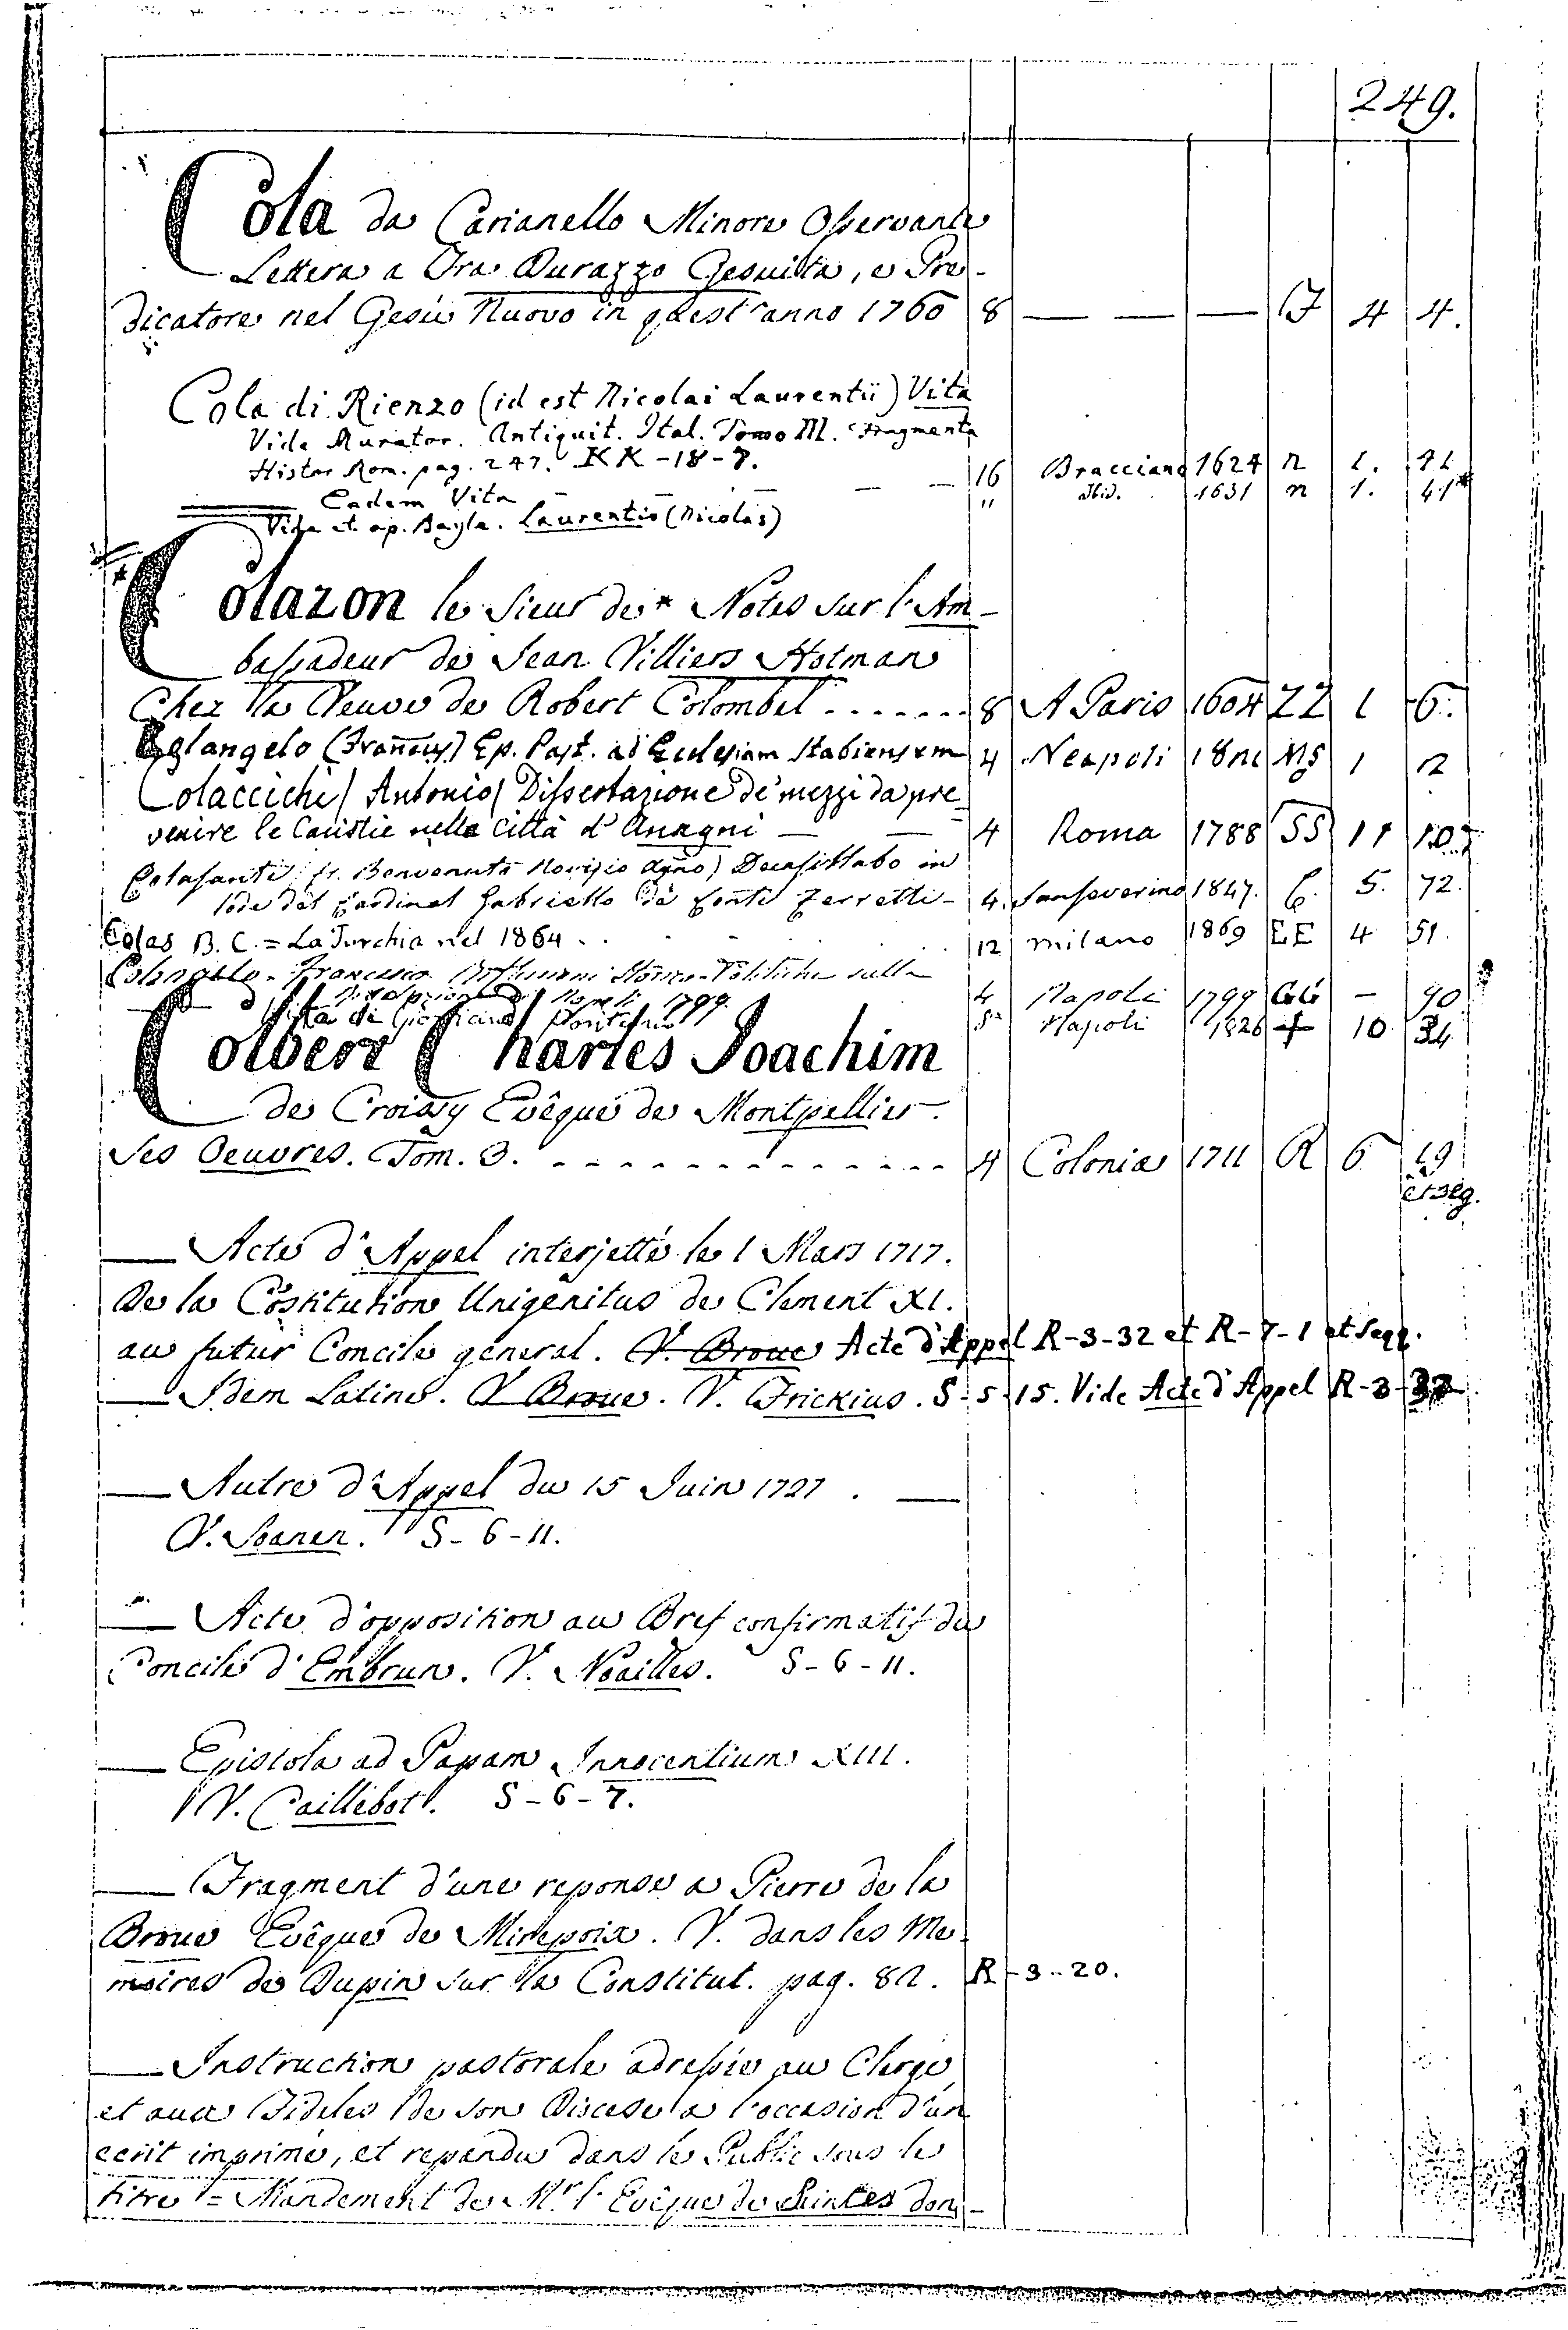 249.
Cola da Carianello Minore Osservante
Lettera a Ora Durazzo Gesuita, e Pre-
dicatore nel Gesù Nuovo in quest'anno 1760 8 — — — J 4 4.
Cola di Rienzo (id est Nicolai Laurentii) Vita
Vide Murator. Antiquit. Ital. Tomo III. Fragmenta
Histor Rom. pag. 247. KK-18-7.
— — 16 Bracciano 1624 n 1.
Eadem Vita — " Ibid. 1631 n 1. 41*
Vide et. ap. Bayle. Laurentio (Nicolas)
Colazon le Sieur de * Notes sur l'Am-
bassadeur de Jean Villiers Hotman
Chez la Veuve de Robert Colombel ....... 8 A Paris 1604 ZZ 1 6.
Colangelo (Franciscus) Ep. Past. ad Ecclesiam Stabiensem 4 Neapoli 1821 MS 1 12
Colacicchi (Antonio) Dissertazione de' mezzi da pre-
venire le Caristie nella Città d'Anagni — — 4 Roma 1788 SS 11 10.
Colasanti fr. Benvenuto Novizio Decasillabo in
lode del Cardinal Gabriello de' Conti Ferretti - 4. Sanseverino 1847. C. 5. 72.
Colas B. C. = La Turchia nel 1864 . . . 12 Milano 1869 EE 4 51.
Colangelo. Francesco Storico-Politiche sulla
Napoli 1799 4 Napoli 1799 — 90
Vita di Pontano 8º Napoli 1826 10 34
Colbert Charles Joachim
de Croissy Evêque de Montpellier.
Ses Oeuvres. Tom. 3. - - - - - - - - - - - - - 4 Colonia 1711 R 6 19
et seg.
— Acte d'Appel interjetté le 1 Mars 1717.
De la Costitution Unigenitus de Clement XI.
au futur Concile general. V. Broue Acte d'Appel R-3-32 et R-7-1 et seqq.
— Idem Latine. V Broue. V. Frickius. S-5-15. Vide Acte d'Appel R-3-32
— Autre d'Appel du 15 Juin 1727 . —
V. Soanen. S-6-11.
— Acte d'opposition au Bref confirmatif du
Concile d'Embrun. V. Noailles. S-6-11.
— Epistola ad Papam Innocentium XIII.
V. Caillebot. S-6-7.
— Fragment d'une reponse a Pierre de la
Broue Evêque de Mirepoix. V. dans les Me-
moires de Dupin sur la Constitut. pag. 82. R-3-20.
— Instruction pastorale adressée au Clerge
et aux Fideles de son Diocese a l'occasion d'un
ecrit imprimé, et repandu dans le Public sous le
titre = Mandement de Mr l'Evêque de Saintes don-